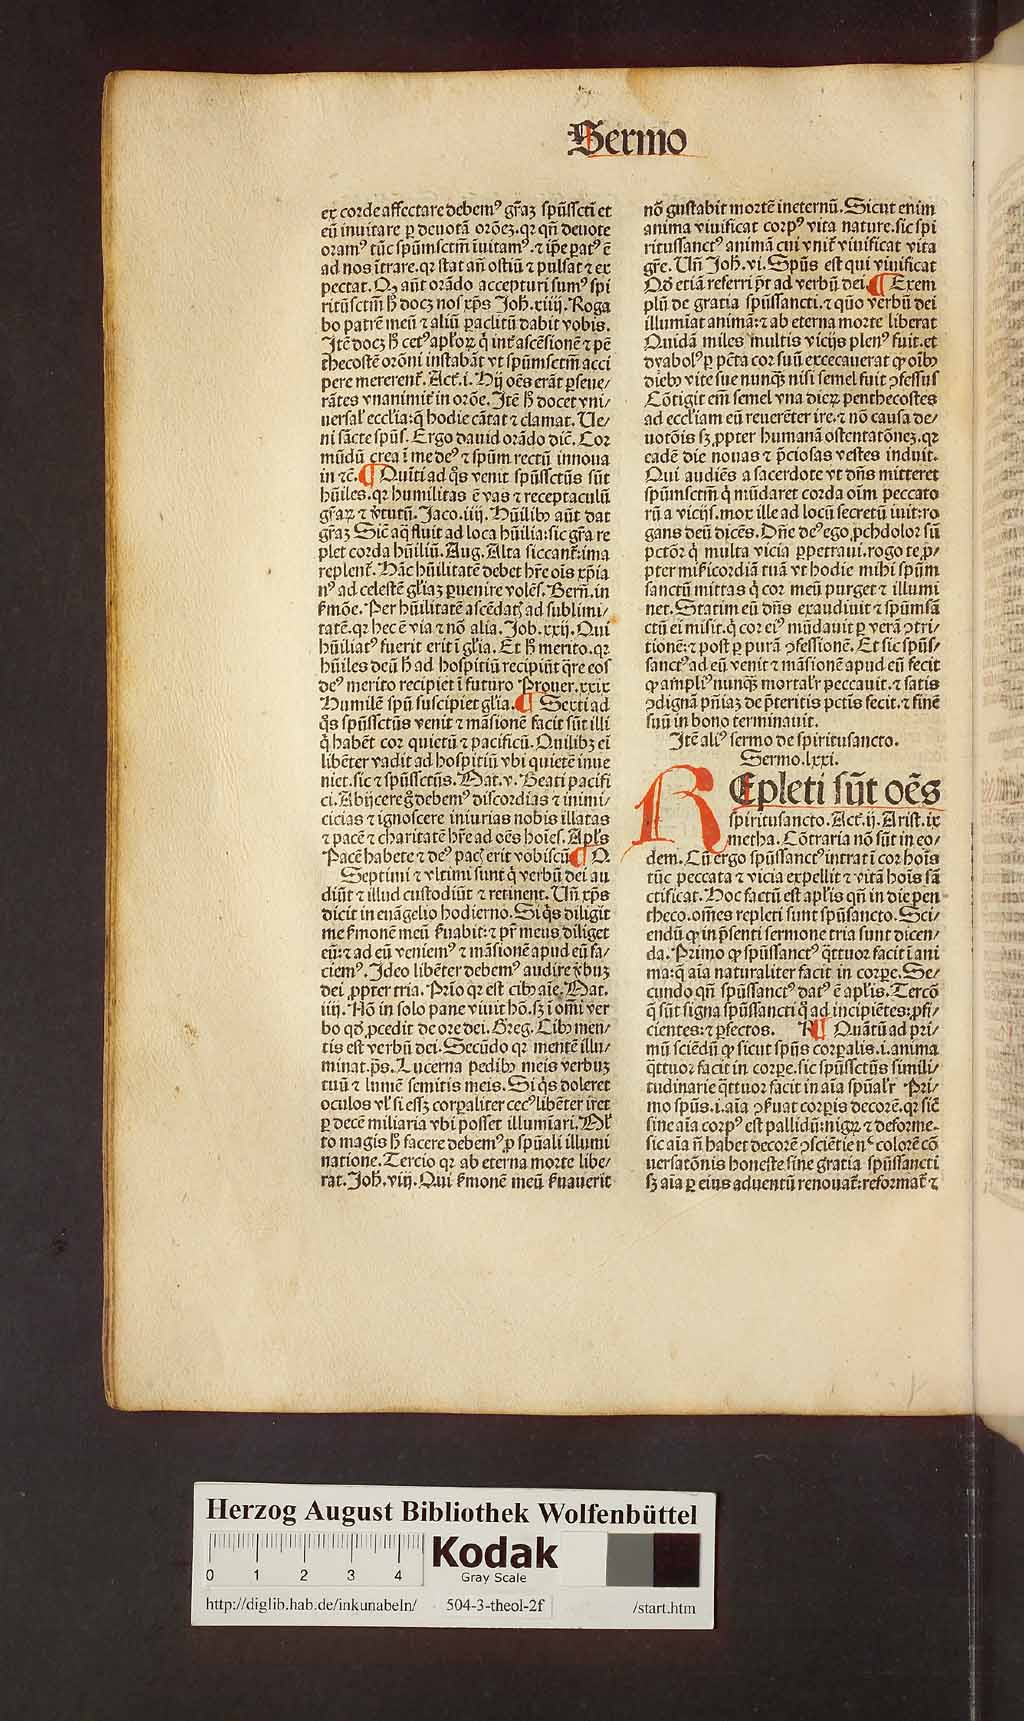 Sermo
ex corde affectare debemꝰ gr̄aꝫ spūssctī et
eū inuitare ꝑ deuotā orōeꝫ. qꝛ qn̄ deuote
oramꝰ tūc spūmsctm̄ īuitamꝰ. ⁊ ip̄e patꝰ ē
ad nos ītrare. qꝛ stat an̄ ostiū ⁊ pulsat ⁊ ex
pectat. Qꝙ aūt orādo accepturi sumꝰ spi
ritūsctm̄ hͦ docꝫ nos xp̄s Joh̄. xiiij. Roga
bo patrē meū ⁊ aliū ꝑaclitū dabit vobis.
Itē docꝫ hͦ cetꝰ apl'oꝝ q̇ int̄ ascēsionē ⁊ pē
thecostē orōni instabāt vt spūmsctm̄ acci
pere mererent̄. Act̄. i. Hij oēs erāt ꝑseue/
rātes vnanimit̄ in orōe. Itē hͦ docet vni/
uersal' eccl'ia: q̄ hodie cātat ⁊ clamat. Ue/
ni sācte spūs. Ergo dauid orādo dic̄. Cor
mūdū crea ī me deꝰ ⁊ spūm rectū innoua
in ⁊c̄. ¶ Quīti ad q̊s venit spūssctūs sūt
hūiles. qꝛ humilitas ē vas ⁊ receptaculū
gr̄aꝝ ⁊ v̇tutū. Jaco. iiij. Hūilibꝫ aūt dat
gr̄aꝫ Sic̄ aq̄ fluit ad loca hūilia: sic gr̄a re
plet corda hūiliū. Aug. Alta siccant̄: ima
replent̄. Hāc hūilitatē debet hr̄e oīs xp̄ia
nꝰ ad celestē gl'iaꝫ ꝑuenire volēs. Bern̄. in
s̄mōe. Per hūilitatē ascēdat̄ ad sublimi/
tatē. qꝛ hec ē via ⁊ nō alia. Job. xxij. Qui
hūiliatꝰ fuerit erit ī gl'ia. Et hͦ merito. qꝛ
hūiles deū hͦ ad hospitiū recipiūt q̄re eos
deꝰ merito recipiet ī futuro Prouer. xxix
Humilē spū suscipiet gl'ia. ¶ Sexti ad
q̊s spūssctūs venit ⁊ māsionē facit sūt illi
q̇ habēt cor quietū ⁊ pacificū. Quilibꝫ eī
libēter vadit ad hospitiū vbi quietē inue
niet. sic ⁊ spūssctūs. Mat. v. Beati pacifi
ci. Abijcere g̊ debemꝰ discordias ⁊ inimi/
cicias ⁊ ignoscere iniurias nobis illatas
⁊ pacē ⁊ charitatē hr̄e ad oēs hoīes. Apl's
Pacē habete ⁊ deꝰ pac̄ erit vobiscū ¶ Q.
Septimi ⁊ vltimi sunt q̇ verbū dei au
diūt ⁊ illud custodiūt ⁊ retinent. Un̄ xp̄s
dicit in euāgelio hodierno. Si q̊s diligit
me s̄monē meū s̄uabit: ⁊ pr̄ meus diliget
eū: ⁊ ad eū veniemꝰ ⁊ māsionē apud eū fa/
ciemꝰ. Ideo libēter debemꝰ audire v̇buꝫ
dei ꝓpter tria. Prīo qꝛ est cibꝫ aīe. Mat.
iiij. Nō in solo pane viuit hō. sꝫ ī om̄i ver
bo qd̄ ꝓcedit de ore dei. Greg. Cibꝫ men/
tis est verbū dei. Secūdo qꝛ mentē illu/
minat. p̄s. Lucerna pedibꝫ meis verbuꝫ
tuū ⁊ lumē semitis meis. Si q̊s doleret
oculos vl' si eēꝫ corꝑaliter cecꝰ libēter iret
ꝑ decē miliaria vbi posset illumīari. Ml'
to magis hͦ facere debemꝰ ꝓ spūali illumi
natione. Tercio qꝛ ab eterna morte libe/
rat. Joh̄. viij. Qui s̄monē meū s̄uauerit
nō gustabit mortē ineternū. Sicut enim
anima viuificat corpꝰ vita nature. sic spi
ritussanctꝰ animā cui vnit̄ viuificat vita
gr̄e. Un̄ Joh̄. vi. Spūs est qui viuificat
Qd̄ etiā referri pōt ad verbū dei. ¶ Exem
plū de gratia spūssancti. ⁊ quō verbū dei
illumīat animā: ⁊ ab eterna morte liberat
Quidā miles multis vicijs plenꝰ fuit. et
dyabolꝰ ꝑ pc̄ta cor suū excecauerat ꝙ oībꝫ
diebꝫ vite sue nunqꝫ nisi semel fuit ↄfessus
Cōtigit em̄ semel vna dieꝝ penthecostes
ad eccl'iam eū reuerēter ire. ⁊ nō causa de/
uotōis sꝫ ꝓpter humanā ostentatōneꝫ. qꝛ
eadē die nouas ⁊ p̄ciosas vestes induit.
Qui audiēs a sacerdote vt dn̄s mitteret
spūmsctm̄ q̇ mūdaret corda oīm peccato
rū a vicijs. mox ille ad locū secretū iuit: ro
gans deū dicēs. Dn̄e deꝰ ego ꝓchdolor sū
pctōr q̇ multa vicia ꝑpetraui. rogo te ꝓ/
pter mīcordiā tuā vt hodie mihi spūm
sanctū mittas q̇ cor meū purget ⁊ illumi
net. Statim eū dn̄s exaudiuit ⁊ spūmsā
ctū ei misit. q̇ cor eiꝰ mūdauit ꝑ verā ↄtri/
tionē: ⁊ post ꝑ purā ↄfessionē. Et sic spūs/
sanctꝰ ad eū venit ⁊ māsionē apud eū fecit
ꝙ ampliꝰ nunqꝫ mortal'r peccauit. ⁊ satis
ↄdignā pn̄iaꝫ de p̄teritis pctīs fecit. ⁊ finē
suū in bono terminauit.
Itē aliꝰ sermo de spiritusancto.
Sermo. lxxi.
REpleti sūt oēs
spiritusancto. Act̄. ij. Arist. ix
metha. Cōtraria nō sūt in eo/
dem. Cū ergo spūssanctꝰ intrat ī cor hoīs
tūc peccata ⁊ vicia expellit ⁊ vitā hoīs sā
ctificat. Hoc factū est apl'is qn̄ in die pen
theco. om̄es repleti sunt spūsancto. Sci/
endū ꝙ in p̄senti sermone tria sunt dicen/
da. Primo ꝙ spūssanctꝰ q̄ttuor facit ī ani
ma: q̄ aīa naturaliter facit in corꝑe. Se/
cundo qn̄ spūssanctꝰ datꝰ ē apl'is. Tercō
q̄ sūt signa spūssancti q̊ ad incipiētes: ꝓfi/
cientes: ⁊ ꝑfectos. R ¶ Quātū ad pri/
mū sciēdū ꝙ sicut spūs corꝑalis. i. anima
q̄ttuor facit in corꝑe. sic spūssctūs simili/
tudinarie q̄ttuor facit in aīa spūal'r Pri/
mo spūs. i. aīa ↄs̄uat corꝑis decorē. qꝛ sic̄
sine aīa corpꝰ est pallidū: nigꝝ ⁊ deforme.
sic aīa n̄ habet decorē ↄsciētie nͨ colorē cō
uersatōnis honeste sine gratia spūssancti
sꝫ aīa ꝑ eius aduentū renouat̄: reformat̄ ⁊
Herzog August Bibliothek Wolfenbüttel
0 1 2 3 4
Kodak
Gray Scale
http://diglib.hab.de/inkunabeln/ 504-3-theol-2f /start.htm